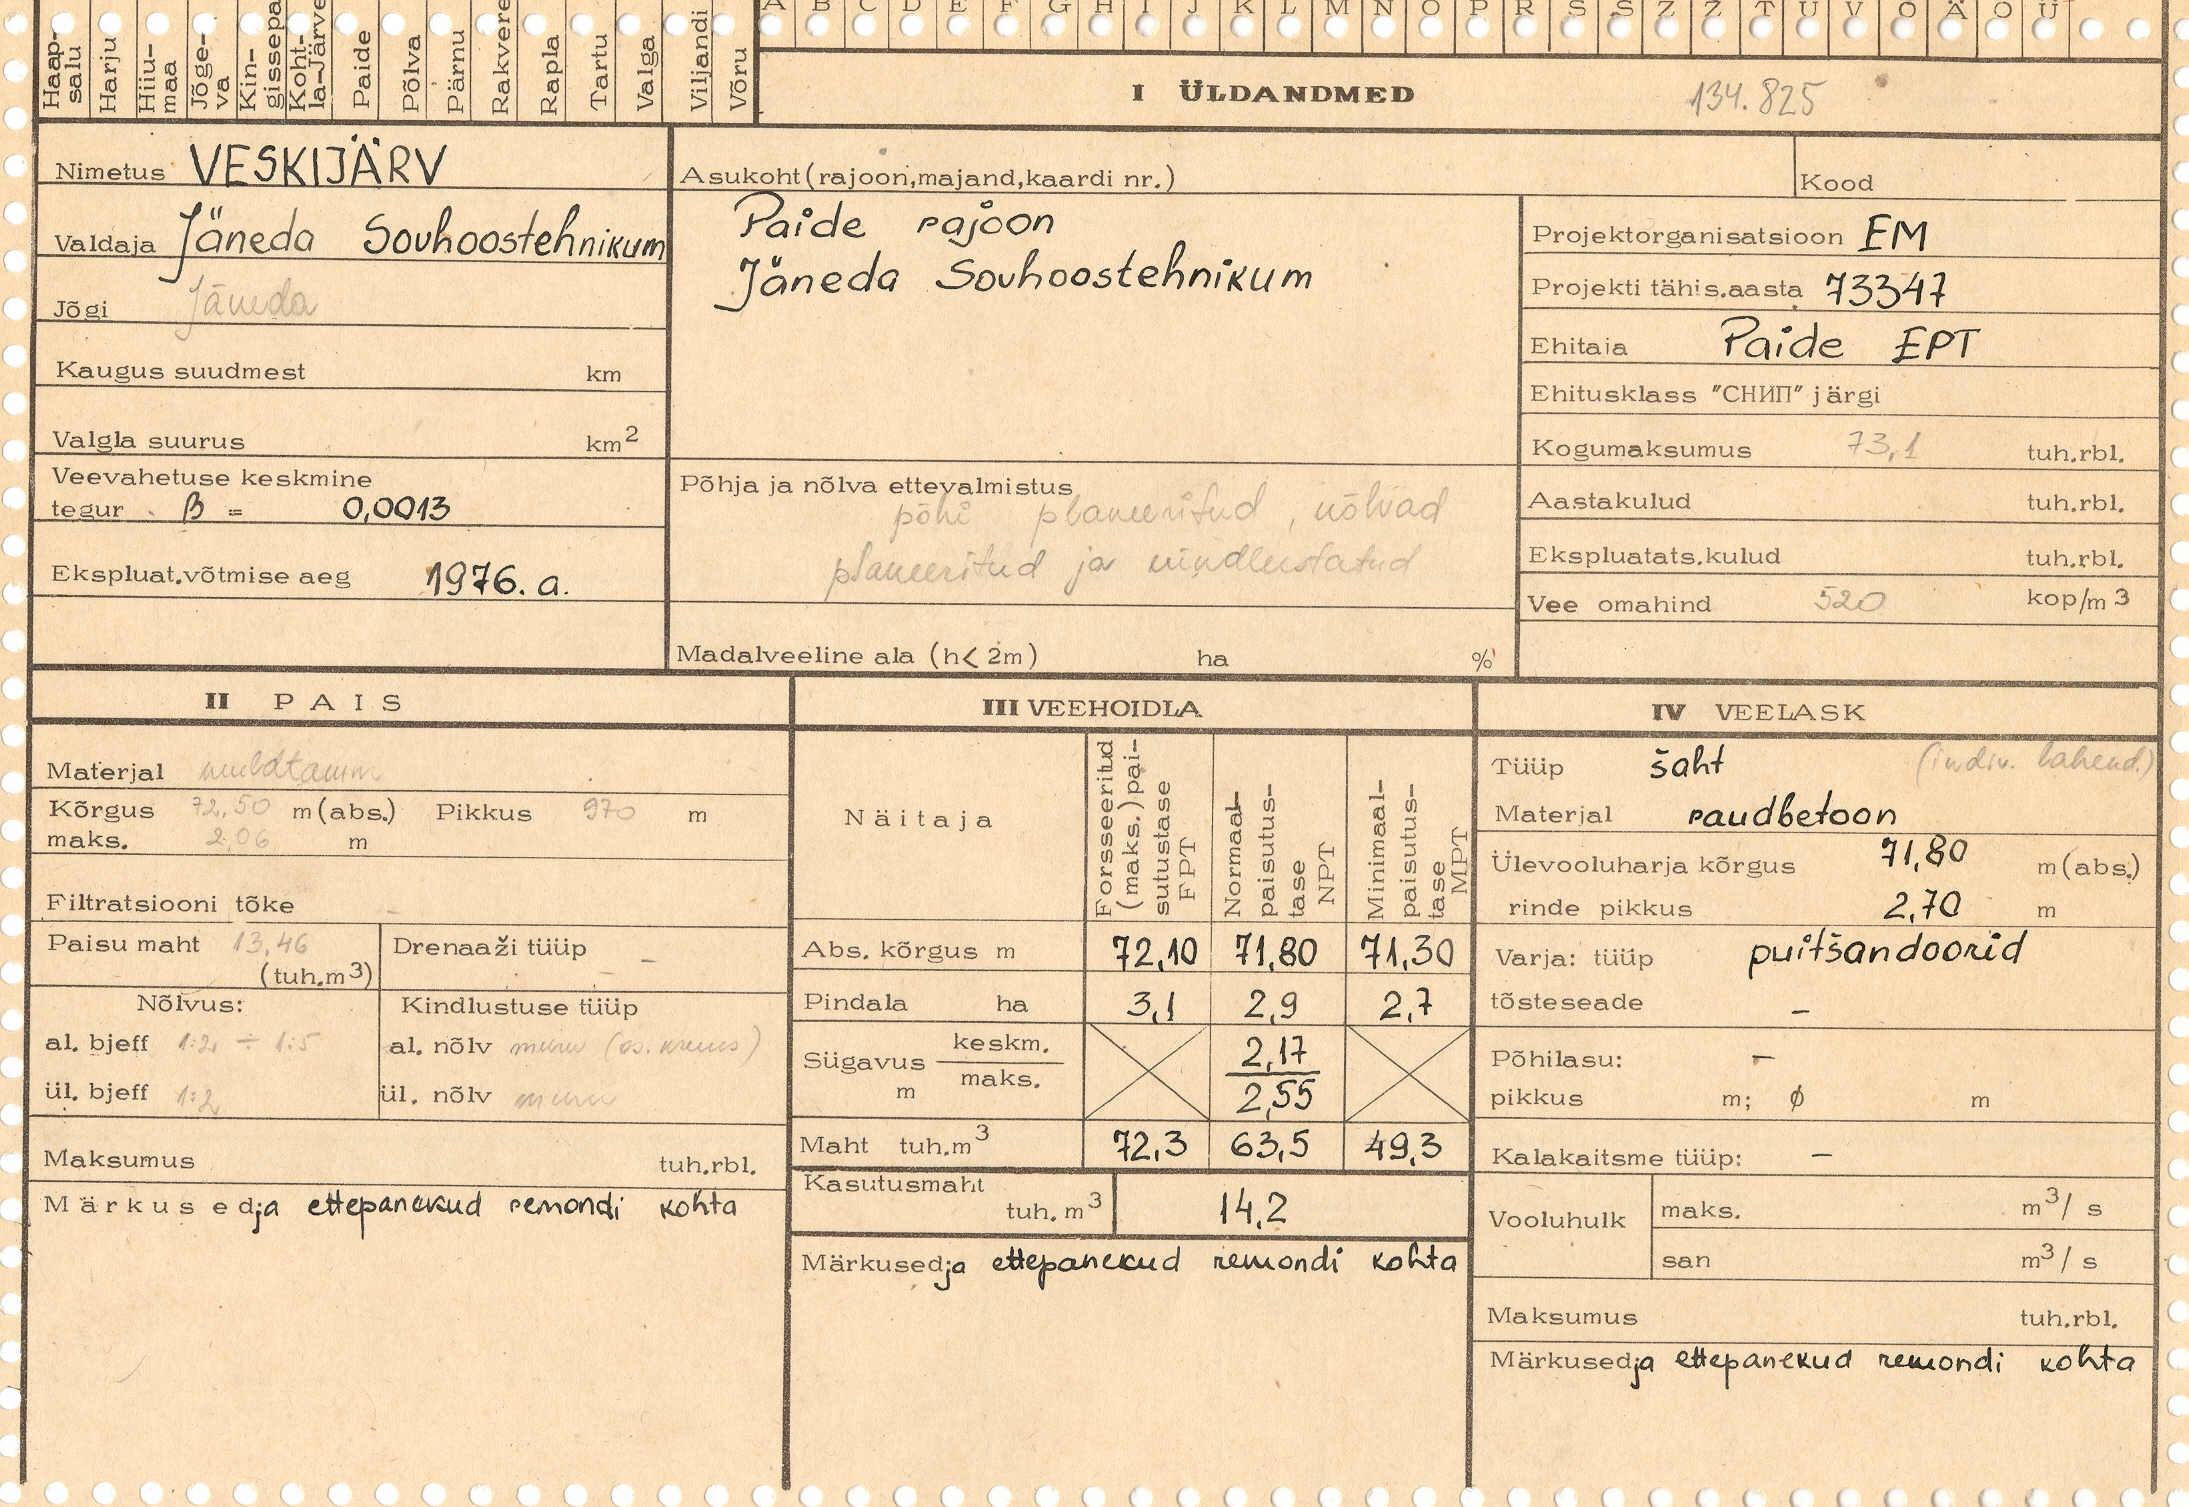 A B C D E F G H I J K L M N O P R S Š Z Ž T U V Õ Ä Ö Ü
Haap-salu Harju Hiiu-maa Jõge-va Kin-gissepa Koht-la-Järve Paide Põlva Pärnu Rakvere Rapla Tartu Valga Viljandi Võru
I ÜLDANDMED 134.825
Nimetus VESKIJÄRV
Valdaja Jäneda Sovhoostehnikum
Jõgi Jäneda
Kaugus suudmest km
Valgla suurus km2
Veevahetuse keskmine
tegur β = 0,0013
Ekspluat.võtmise aeg 1976. a.
Asukoht (rajoon,majand,kaardi nr.)
Paide rajoon
Jäneda Sovhoostehnikum
Põhja ja nõlva ettevalmistus
põhi planeeritud, nõlvad
planeeritud ja kindlustatud
Madalveeline ala (h< 2m) ha %
Kood
Projektorganisatsioon EM
Projekti tähis.aasta 73347
Ehitaja Paide EPT
Ehitusklass "СНИП" järgi
Kogumaksumus 73,1 tuh.rbl.
Aastakulud tuh.rbl.
Ekspluatats.kulud tuh.rbl.
Vee omahind 520 kop/m3
II PAIS
Materjal muldtamm
Kõrgus 72,50 m (abs.) Pikkus 970 m
maks. 2,06 m
Filtratsiooni tõke -
Paisu maht 13,46
(tuh.m3)
Drenaaži tüüp -
Nõlvus:
al. bjeff 1:2 ÷ 1:5
ül. bjeff 1:2
Kindlustuse tüüp
al. nõlv muru (os. kruus)
ül. nõlv muru
Maksumus tuh.rbl.
Märkused ja ettepanekud remondi kohta
III VEEHOIDLA
Näitaja
Forsseeritud (maks.) pai-sutustase FPT
Normaal-paisutus-tase NPT
Minimaal-paisutus-tase MPT
Abs. kõrgus m 72,10 71,80 71,30
Pindala ha 3,1 2,9 2,7
Sügavus m keskm. 2,17
maks. 2,55
Maht tuh.m3 72,3 63,5 49,3
Kasutusmaht
tuh. m3 14,2
Märkused ja ettepanekud remondi kohta
IV VEELASK
Tüüp šaht (indiv. lahend.)
Materjal raudbetoon
Ülevooluharja kõrgus 71,80 m (abs.)
rinde pikkus 2,70 m
Varja: tüüp puitšandoorid
tõsteseade -
Põhilasu: -
pikkus m; ϕ m
Kalakaitsme tüüp: -
Vooluhulk maks. m3/s
san m3/s
Maksumus tuh.rbl.
Märkused ja ettepanekud remondi kohta